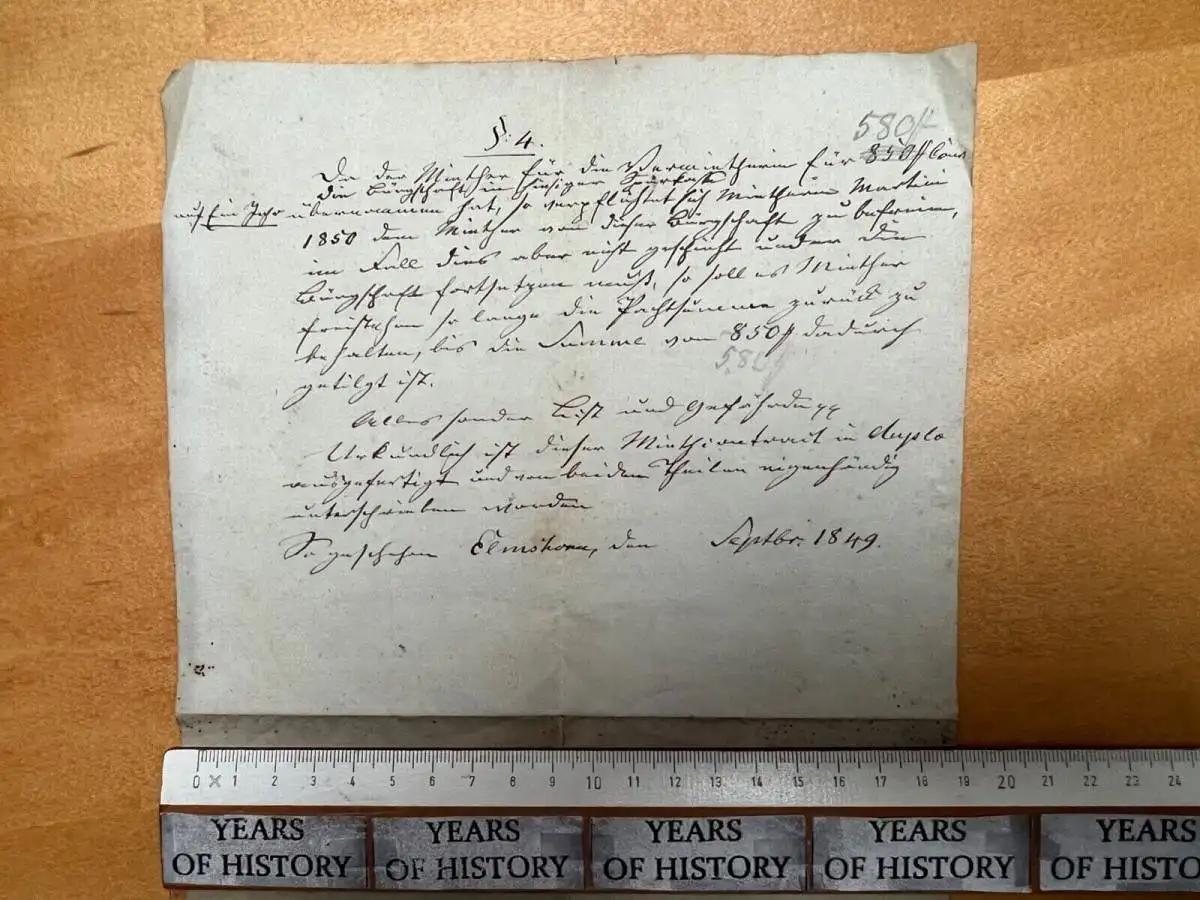 580 ₰
§. 4.
Da der Miether für die Vermietherin für 850 ₰ Cour
die Bürgschaft in hiesiger Sparkasse
auf Ein Jahr übernommen hat, so verpflichtet sich Mietherin Martini
1850 den Miether von dieser Bürgschaft zu befreien,
im Fall dies aber nicht geschieht und er die
Bürgschaft fortsetzen muß, so soll es Miether
freistehen so lange die Pachtsumme zurück zu
behalten, bis die Summe von 850 ₰ dadurch
580
getilgt ist.
Alles sonder List und Gefährde
Urkundlich ist dieser Miethcontract in duplo
ausgefertigt und von beiden Theilen eigenhändig
unterschrieben worden
So geschehen Elmshorn, den Septbr. 1849.
0 1 2 3 4 5 6 7 8 9 10 11 12 13 14 15 16 17 18 19 20 21 22 23 24
YEARS OF HISTORY YEARS OF HISTORY YEARS OF HISTORY YEARS OF HISTORY YEARS OF HISTORY